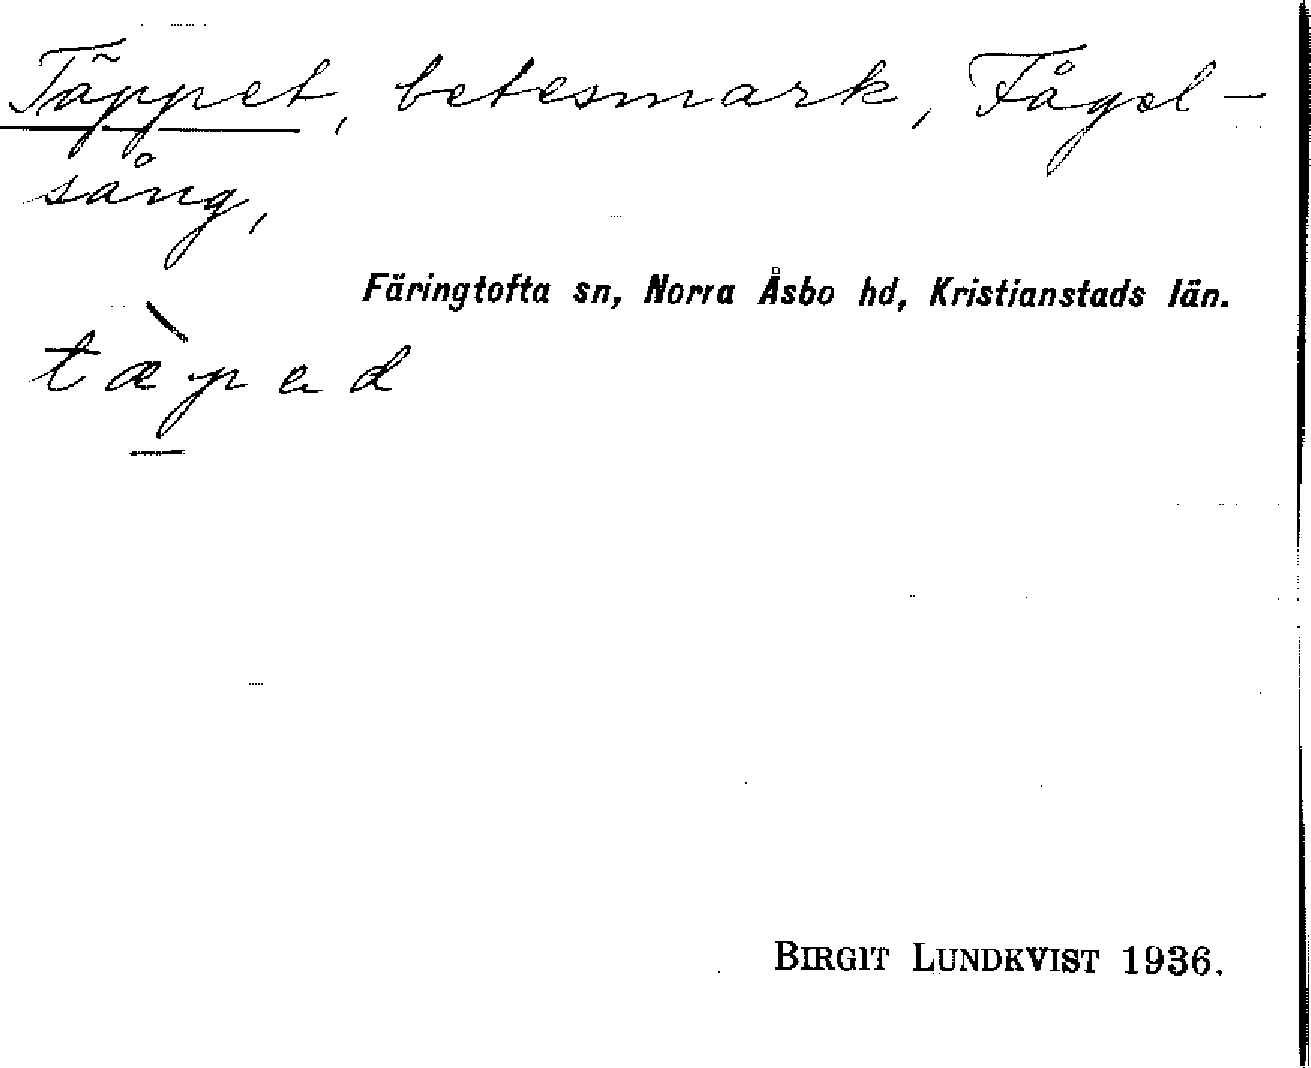 Täppet, betesmark, Fågel-
sång,
Färingtofta sn, Norra Åsbo hd, Kristianstads län.
tæ̀pəd
BIRGIT LUNDKVIST 1936.